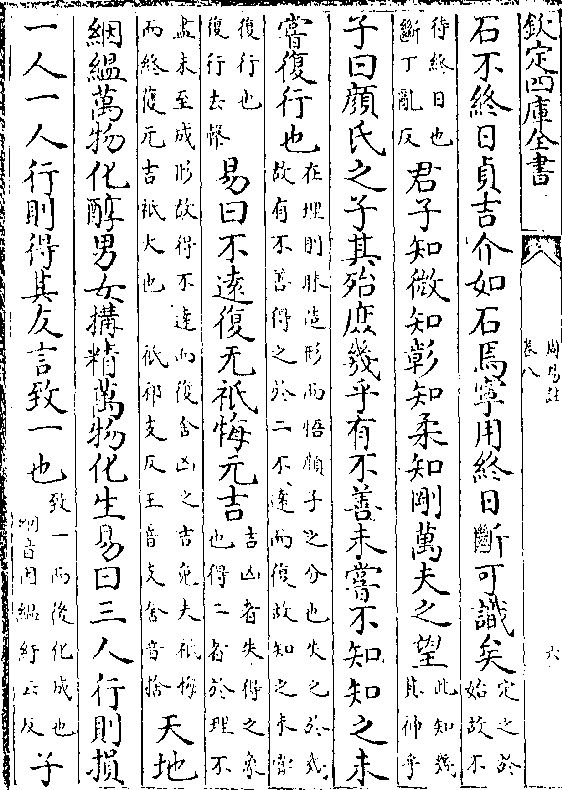 欽定四庫全書
周易註
卷八
六
石不終日貞吉介如石焉寧用終日斷可識矣定之於始故不
待終日也斷丁亂反君子知微知彰知柔知剛萬夫之望此知幾其神乎
子曰顔氏之子其殆庶幾乎有不善未嘗不知知之未
嘗復行也在理則昧造形而悟顔子之分也失之於幾故有不善得之於二不逺而復故知之未嘗
復行也復行去聲易曰不逺復无祇悔元吉吉凶者失得之象也得二者於理不
盡未至成形故得不逺而復舍凶之吉免夫祇悔而終獲元吉祇大也祇祁支反王音支舍音捨天地
絪縕萬物化醇男女搆精萬物化生易曰三人行則損
一人一人行則得其友言致一也致一而後化成也絪音因縕紆云反子